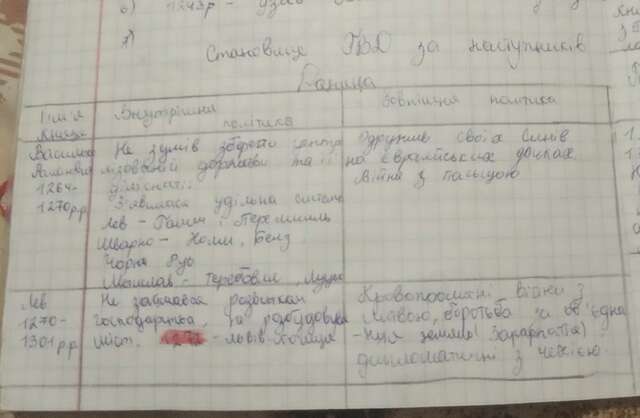 1243р -
Становище ГВД за наступників
Данила
Ім'я
князя
Внутрішня
політика
Зовнішня політика
Василько
1264-
1270рр
Не зумів зберегти центра
лізованій держави та її
цілісність
З'явилася удільна система
Лев - Галич і Перемишль
Шварно - Холм, Белз
Чорна Русь
Мстислав - Теребовля, Луцьк
Одружив своїх синів
на європейських дочках
Війна з Польщою
Лев
1270-
1301рр
Не займався розвитком
господарства, та розбудовував
міст. - Львів столиця
Кровопролитні війни з
Литвою, боротьба за об'єдна
-ння земель (Закарпаття)
дипломатичні з Чехією